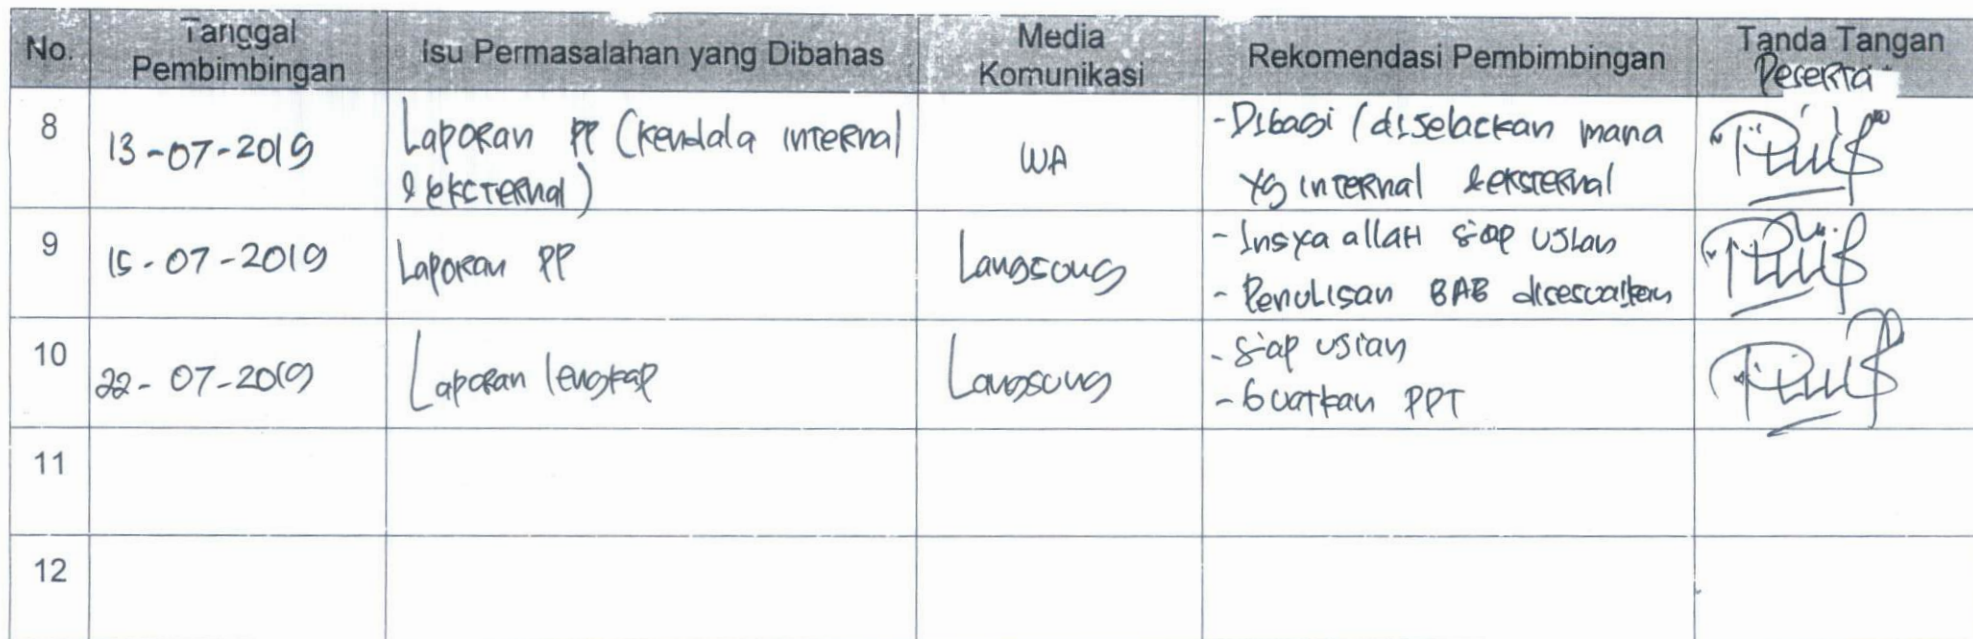 No.
Tanggal
Pembimbingan
Isu Permasalahan yang Dibahas
Media
Komunikasi
Rekomendasi Pembimbingan
Tanda Tangan
Peserta
8
13-07-2019
Laporan PP (kendala internal
& eksternal)
WA
- Dibagi / diselaskan mana
yg internal & eksternal
9
15-07-2019
Laporan PP
Langsung
- Insya allah siap ujian
- Penulisan BAB disesuaikan
10
22-07-2019
Laporan lengkap
Langsung
- Siap ujian
- buatkan PPT
11
12